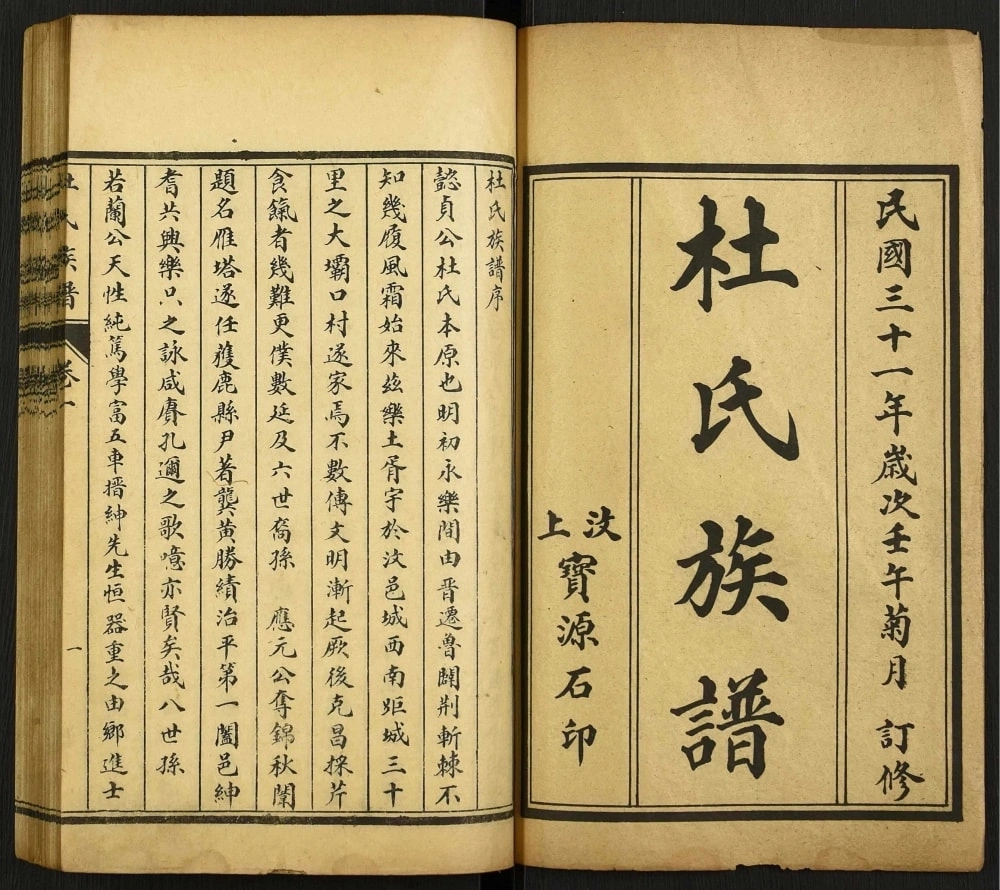 民國三十一年歲次壬午菊月 訂修
杜氏族譜
汶上
寶源石印
杜氏族譜序
懿貞公杜氏本原也明初永樂間由晋遷魯闢荆斬棘不
知幾履風霜始來兹樂土胥宇於汶邑城西南距城三十
里之大壩口村遂家焉不數傳文明漸起厥後克昌採芹
食餼者幾難更僕數延及六世裔孫 應元公奪錦秋闈
題名雁塔遂任蒦鹿縣尹著龔黄勝績治平第一闔邑紳
耆共興樂只之詠咸賡孔邇之歌噫亦賢矣哉八世孫
若蘭公天性純篤學富五車搢紳先生恒器重之由鄉進士
杜氏族譜
卷一
一